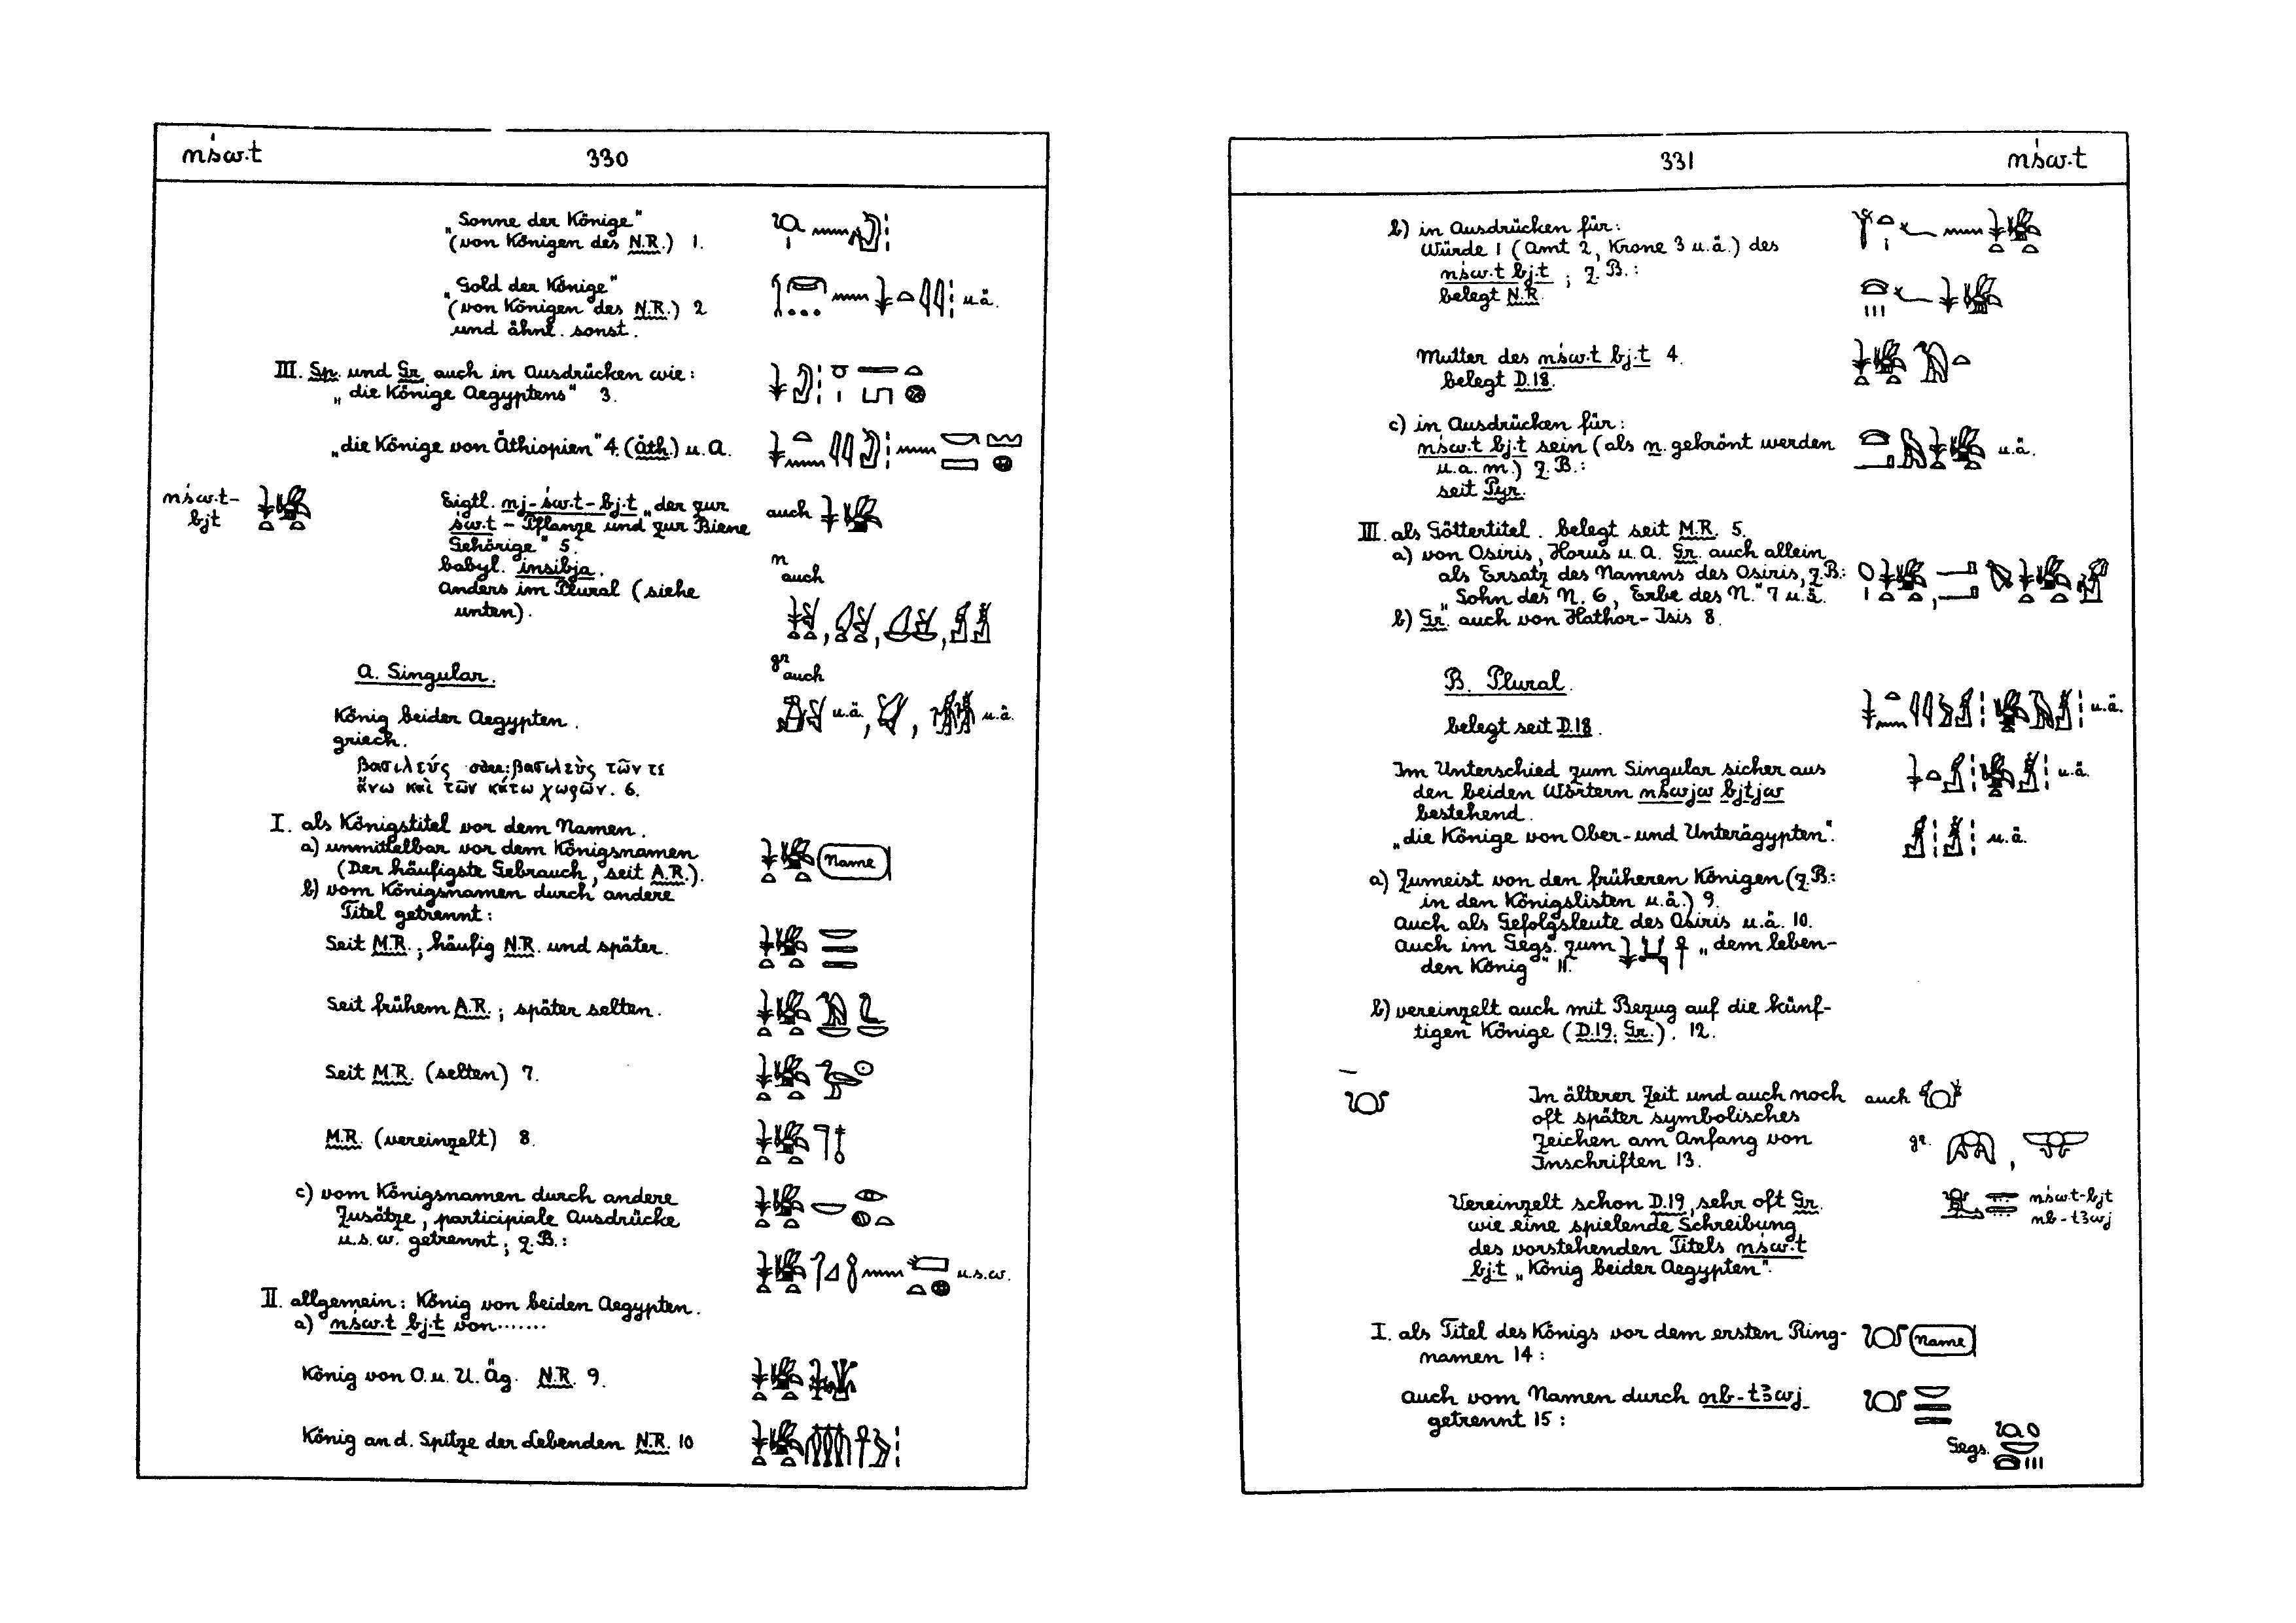 nśw.t
330
„Sonne der Könige“
(von Königen des N.R.) 1.
„Gold der Könige“
(von Königen des N.R.) 2
und ähnl. sonst.
u.ä.
III. Sp. und Gr. auch in Ausdrücken wie:
„die Könige Aegyptens“ 3.
„die Könige von Äthiopien“ 4. (äth.) u. A.
nśw.t-
bjt
Eigtl. nj-św.t-bj.t „der zur
św.t-Pflanze und zur Biene
Gehörige“ 5.
babyl. insibja.
Anders im Plural (siehe
unten).
auch
n
auch
A. Singular.
gr
auch
König beider Aegypten.
griech.
u.ä., , u.ä.
βασιλεύς oder: βασιλεὺς τῶν τε
ἄνω καὶ τῶν κάτω χωρῶν. 6.
I. als Königstitel vor dem Namen.
a) unmittelbar vor dem Königsnamen
(Der häufigste Gebrauch, seit A.R.).
Name
b) vom Königsnamen durch andere
Titel getrennt:
Seit M.R.; häufig N.R. und später.
Seit frühem A.R.; später selten.
Seit M.R. (selten) 7.
M.R. (vereinzelt) 8.
c) vom Königsnamen durch andere
Zusätze, participiale Ausdrücke
u.s.w. getrennt; z.B.:
u.s.w.
II. allgemein: König von beiden Aegypten.
a) nśw.t bj.t von.......
König von O. u. U. Äg. N.R. 9.
König an d. Spitze der Lebenden N.R. 10
331
nśw.t
b) in Ausdrücken für:
Würde 1 (Amt 2, Krone 3 u.ä.) des
nśw.t bj.t; z.B.:
belegt N.R.
Mutter des nśw.t bj.t 4.
belegt D.18.
c) in Ausdrücken für:
nśw.t bj.t sein (als n. gekrönt werden
u.a.m.) z.B.:
seit Pyr.
u.ä.
III. als Göttertitel. belegt seit M.R. 5.
a) von Osiris, Horus u. A. Gr. auch allein
als Ersatz des Namens des Osiris, z.B.:
„Sohn des N.“ 6, „Erbe des N.“ 7 u.ä.
b) Gr. auch von Hathor-Isis 8.
B. Plural.
belegt seit D.18.
u.ä.
Im Unterschied zum Singular sicher aus
den beiden Wörtern nśwjw bjtjw
bestehend.
u.ä.
„die Könige von Ober- und Unterägypten“.
u.ä.
a) Zumeist von den früheren Königen (z.B.:
in den Königslisten u.ä.) 9.
Auch als Gefolgsleute des Osiris u.ä. 10.
Auch im Gegs. zum „dem leben-
den König“ 11.
b) vereinzelt auch mit Bezug auf die künf-
tigen Könige (D.19; Gr.). 12.
In älterer Zeit und auch noch
oft später symbolisches
Zeichen am Anfang von
Inschriften 13.
auch
gr.
Vereinzelt schon D.19, sehr oft Gr.
wie eine spielende Schreibung
des vorstehenden Titels nśw.t
bj.t „König beider Aegypten“.
nśw.t-bjt
nb-tꜣwj
I. als Titel des Königs vor dem ersten Ring-
namen 14:
Name
auch vom Namen durch nb-tꜣwj
getrennt 15:
Gegs.